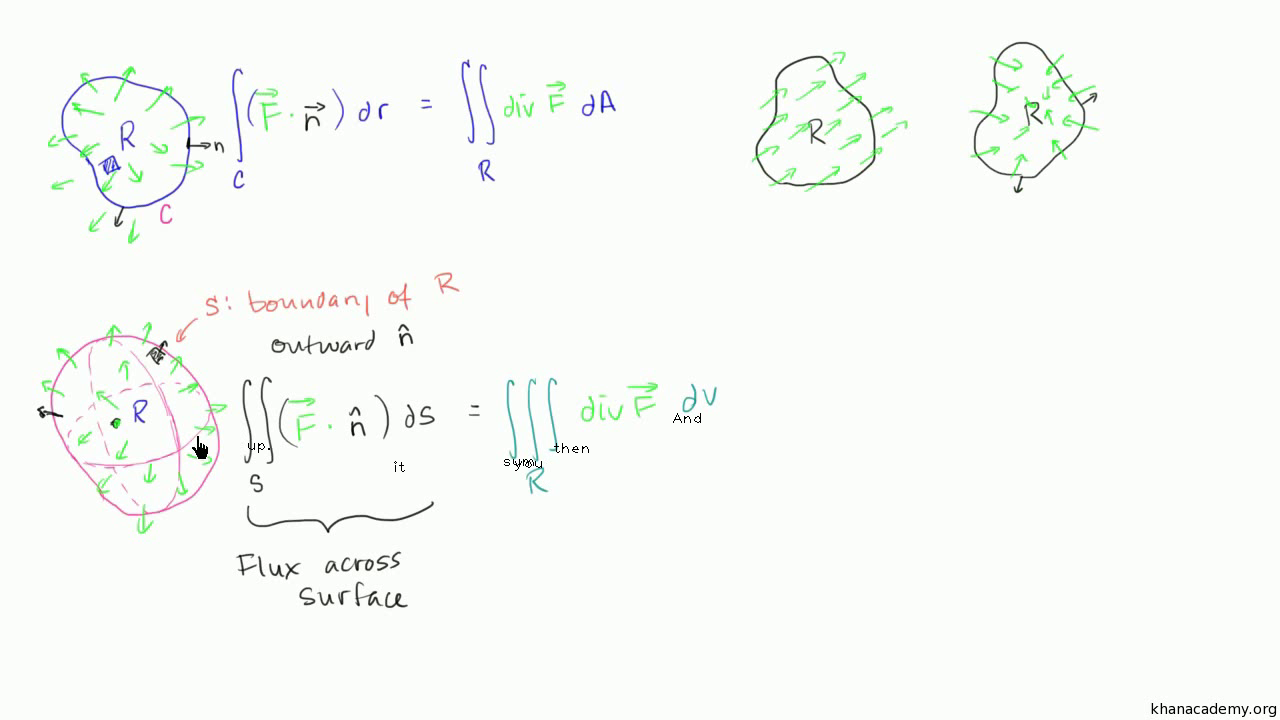 R
n
C
∫_C (F⃗ · n⃗) dr = ∬_R div F⃗ dA
R
R
S: boundary of R
outward n̂
R
∬_S (F⃗ · n̂) dS = ∭_R div F⃗ dv
And
up.
then
it
Flux across
surface
khanacademy.org